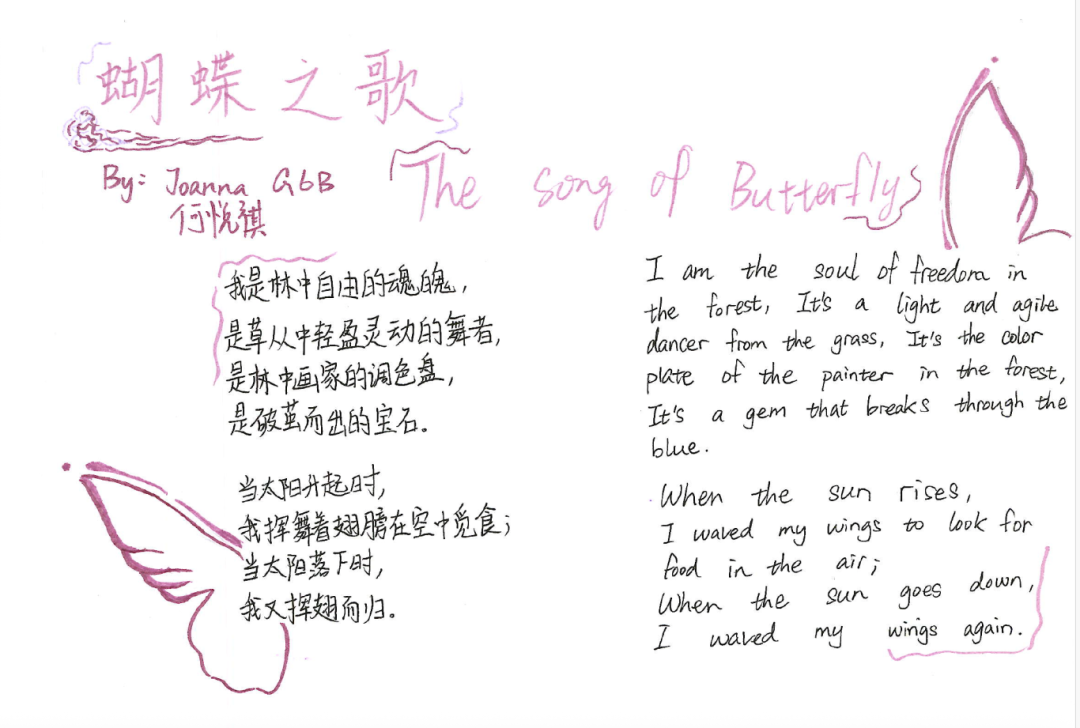 蝴蝶之歌
The song of Butterfly
By: Joanna G6B
何悦祺
我是林中自由的魂魄，
是草从中轻盈灵动的舞者，
是林中画家的调色盘，
是破茧而出的宝石。
当太阳升起时，
我挥舞着翅膀在空中觅食；
当太阳落下时，
我又挥翅而归。
I am the soul of freedom in
the forest, It's a light and agile
dancer from the grass, It's the color
plate of the painter in the forest,
It's a gem that breaks through the
blue.
When the sun rises,
I waved my wings to look for
food in the air;
When the sun goes down,
I waved my wings again.